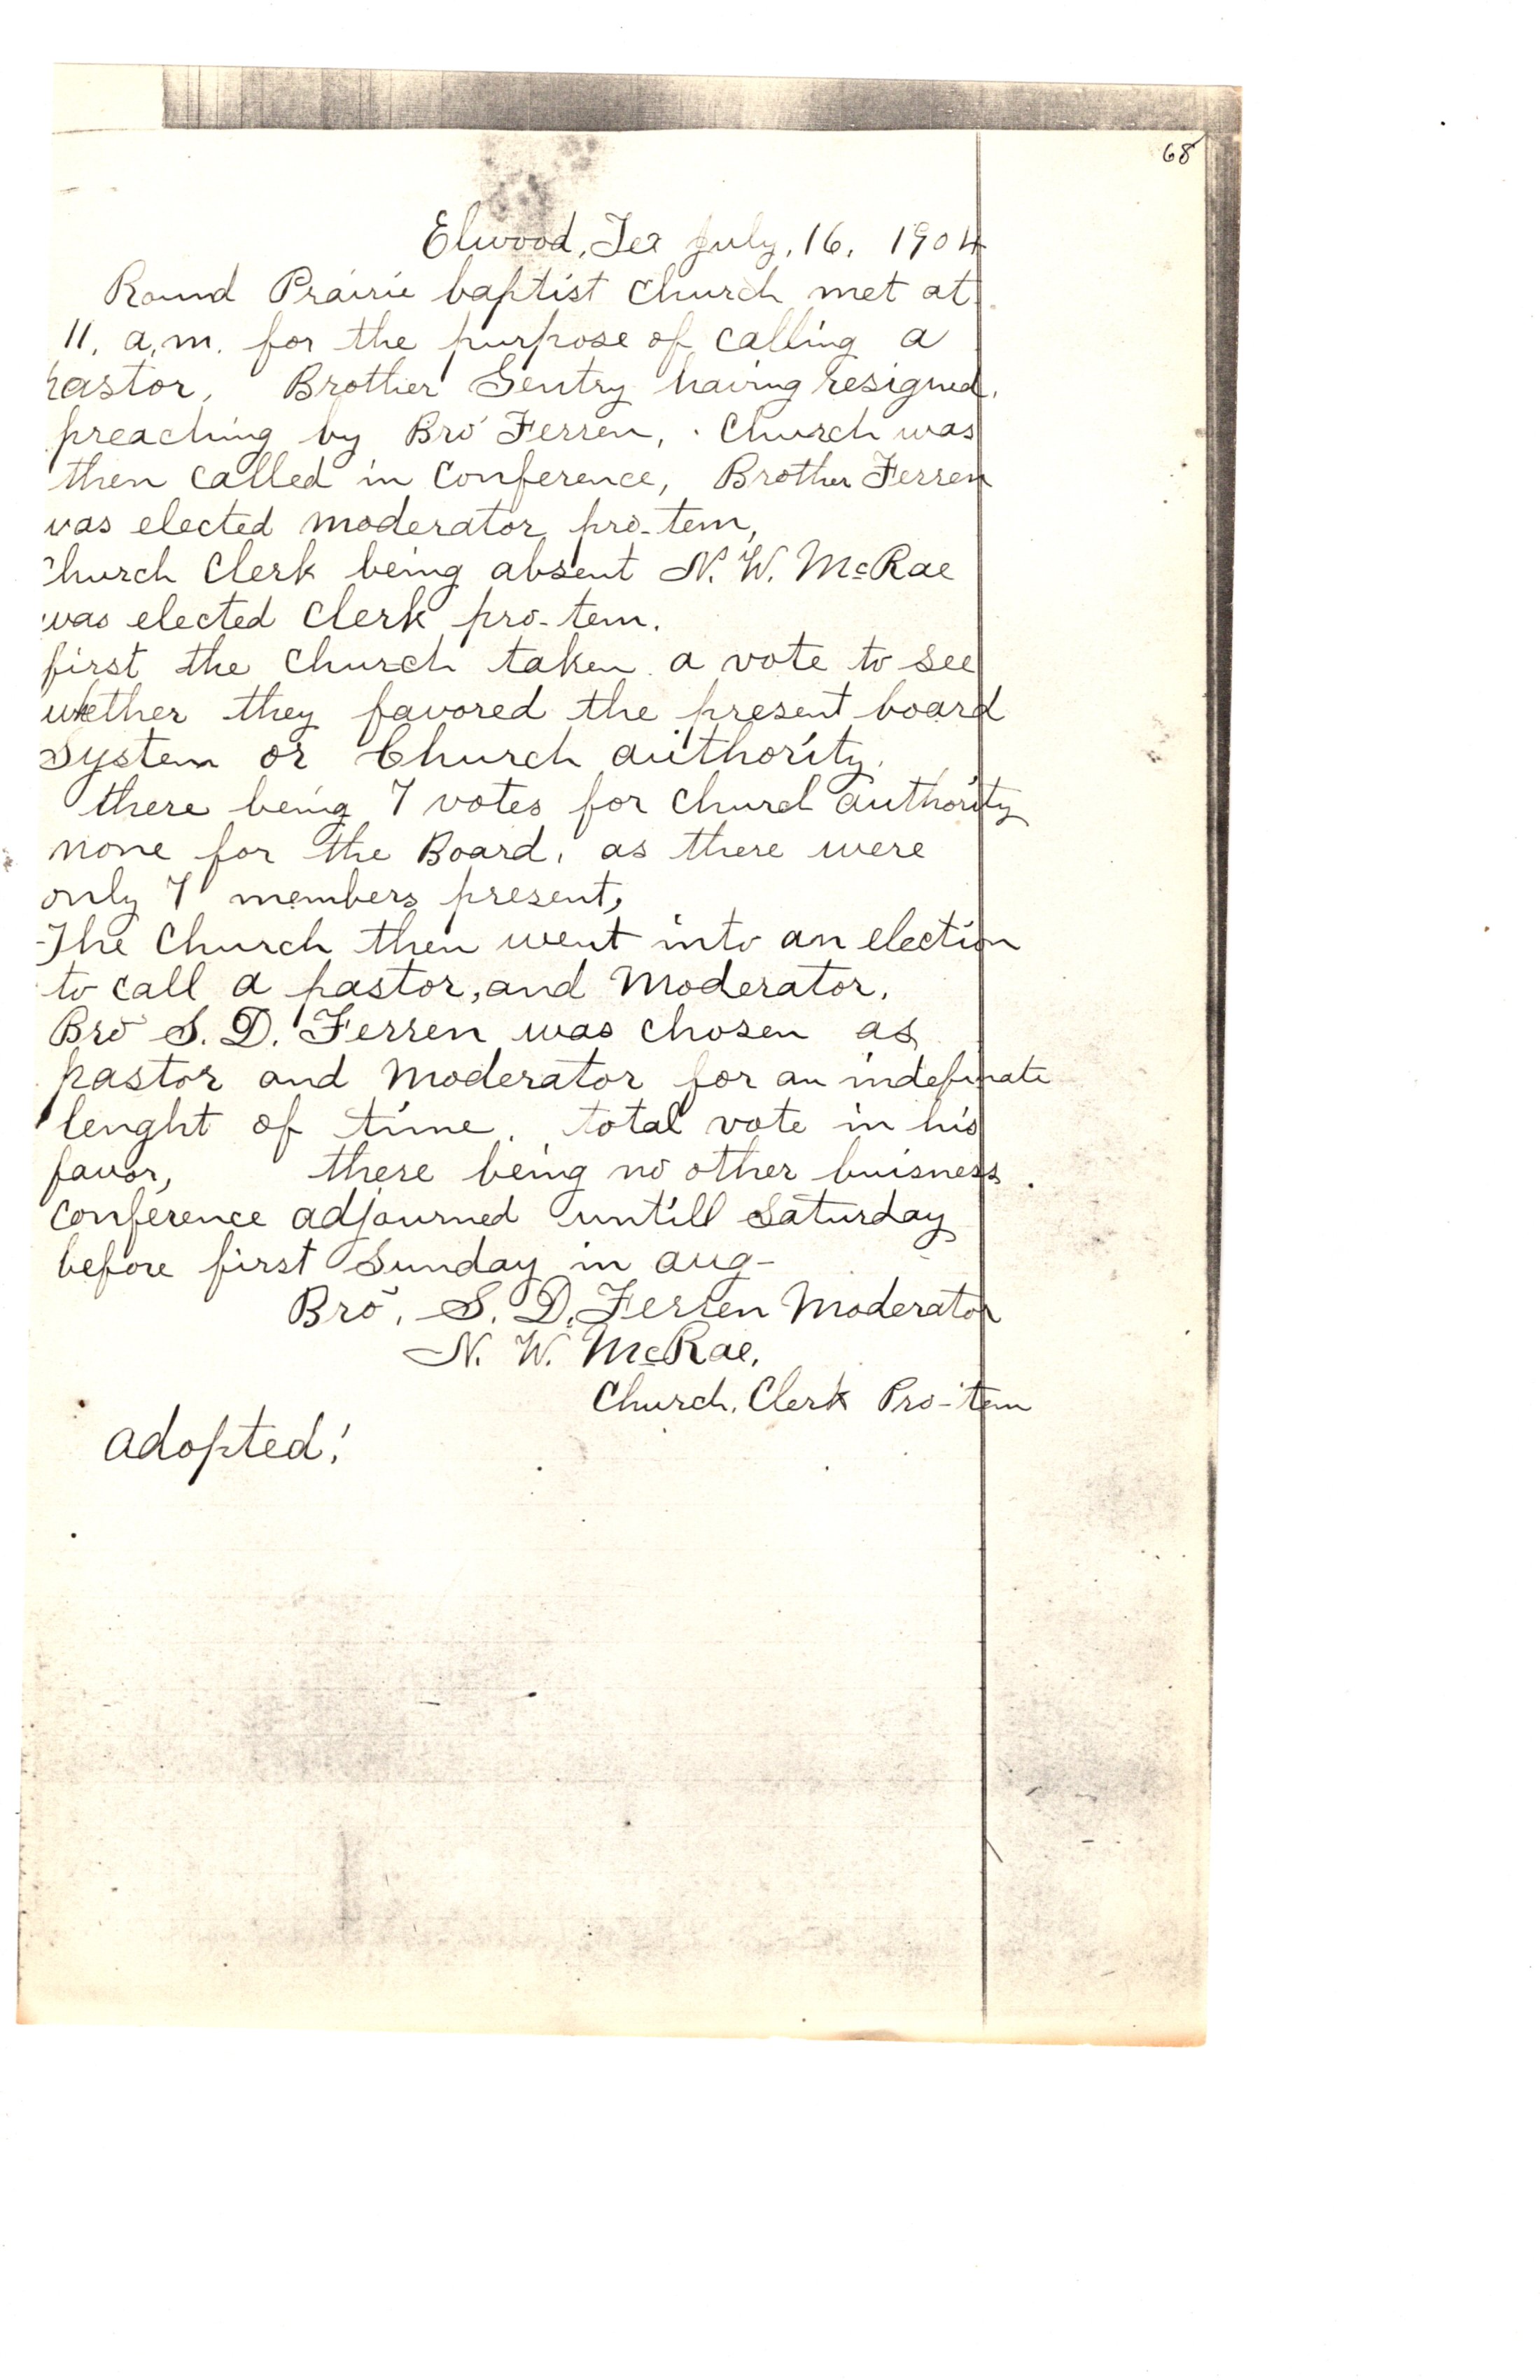 68
Elwood, Tex July, 16, 1904
Round Prairie baptist church met at
11, a.m. for the purpose of calling a
pastor, Brother Gentry having resigned,
preaching by Bro Ferren, Church was
then called in Conference, Brother Ferren
was elected moderator pro-tem,
Church Clerk being absent N. W. McRae
was elected Clerk pro-tem.
first the Church taken a vote to see
whether they favored the present board
System or Church authority.
there being 7 votes for Church authority
none for the Board, as there were
only 7 members present,
The Church then went into an election
to call a pastor, and Moderator.
Bro S. D. Ferren was chosen as
pastor and Moderator for an indefinate
lenght of time. total vote in his
favor, there being no other buisness
Conference adjourned untill Saturday
before first Sunday in aug-
Bro. S. D. Ferren Moderator
N. W. McRae,
Church, Clerk Pro-tem
adopted!